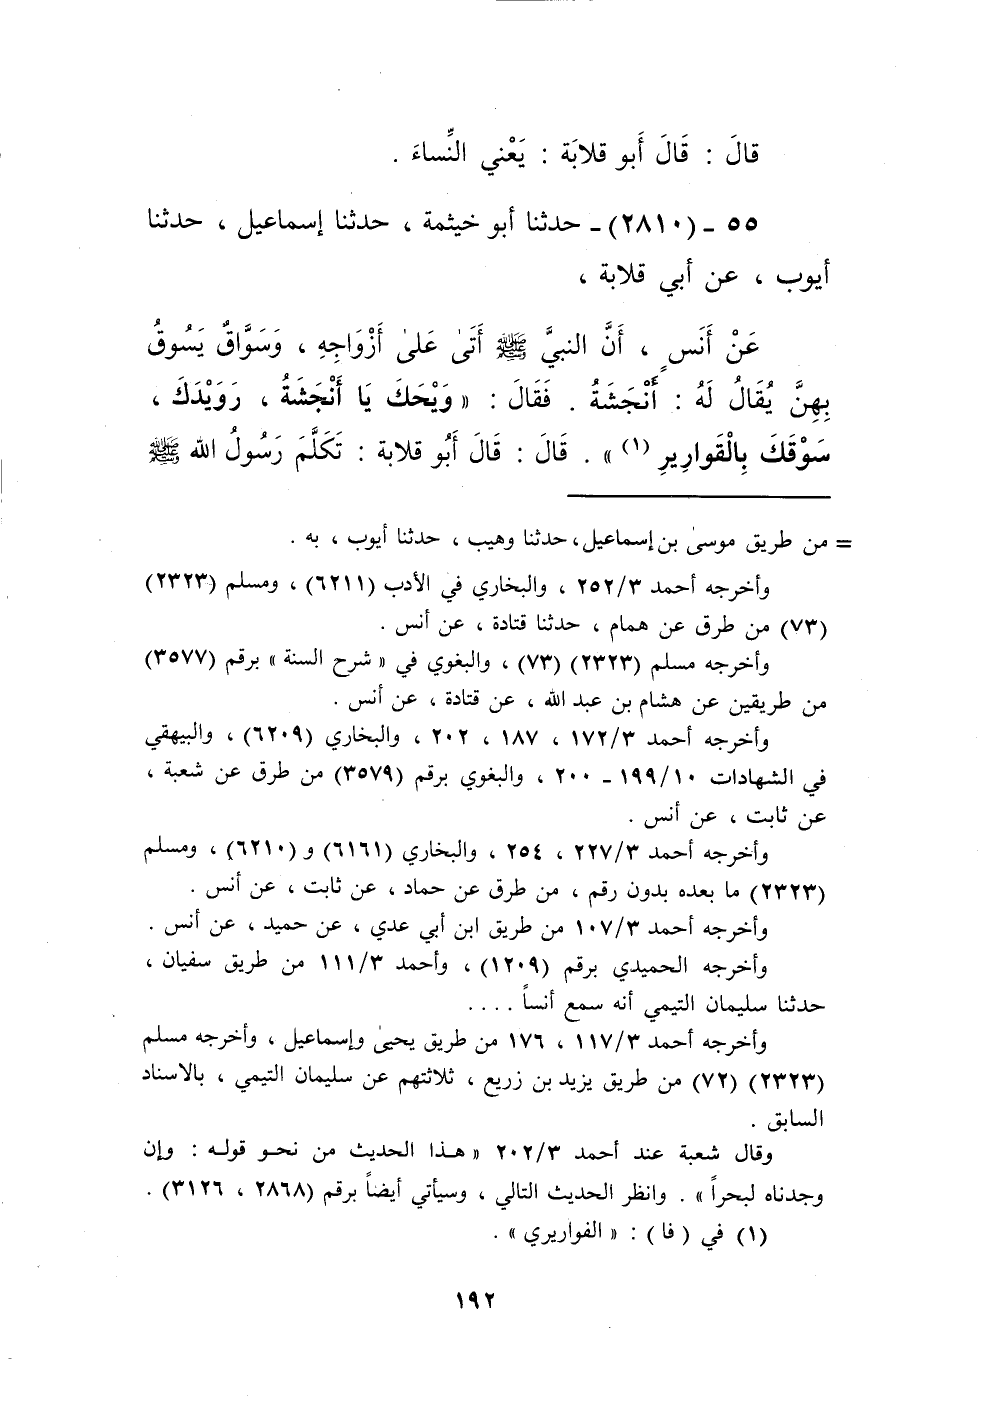 قالَ : قَالَ أَبو قلابَة : يَعْني النِّساءَ .
٥٥ - (٢٨١٠) - حدثنا أبو خيثمة ، حدثنا إسماعيل ، حدثنا
أيوب ، عن أبي قلابة ،
عَنْ أَنَسٍ ، أَنَّ النبيَّ ﷺ أَتَىٰ عَلىٰ أَزْوَاجِهِ ، وَسَوَّاقٌ يَسُوقُ
بِهِنَّ يُقَالُ لَهُ : أَنْجَشَةُ . فَقَالَ : « وَيْحَكَ يَا أَنْجَشَةُ ، رَوَيْدَكَ ،
سَوْقَكَ بِالْقَوارِيرِ (١) » . قَالَ : قَالَ أَبُو قلابة : تَكَلَّمَ رَسُولُ الله ﷺ
= من طريق موسىٰ بن إسماعيل، حدثنا وهيب ، حدثنا أيوب ، به .
وأخرجه أحمد ٢٥٢/٣ ، والبخاري في الأدب (٦٢١١) ، ومسلم (٢٣٢٣)
(٧٣) من طرق عن همام ، حدثنا قتادة ، عن أنس .
وأخرجه مسلم (٢٣٢٣) (٧٣) ، والبغوي في « شرح السنة » برقم (٣٥٧٧)
من طريقين عن هشام بن عبد الله ، عن قتادة ، عن أنس .
وأخرجه أحمد ١٧٢/٣ ، ١٨٧ ، ٢٠٢ ، والبخاري (٦٢٠٩) ، والبيهقي
في الشهادات ١٩٩/١٠ - ٢٠٠ ، والبغوي برقم (٣٥٧٩) من طرق عن شعبة ،
عن ثابت ، عن أنس .
وأخرجه أحمد ٢٢٧/٣ ، ٢٥٤ ، والبخاري (٦١٦١) و (٦٢١٠) ، ومسلم
(٢٣٢٣) ما بعده بدون رقم ، من طرق عن حماد ، عن ثابت ، عن أنس .
وأخرجه أحمد ١٠٧/٣ من طريق ابن أبي عدي ، عن حميد ، عن أنس .
وأخرجه الحميدي برقم (١٢٠٩) ، وأحمد ١١١/٣ من طريق سفيان ،
حدثنا سليمان التيمي أنه سمع أنساً . . . .
وأخرجه أحمد ١١٧/٣ ، ١٧٦ من طريق يحيىٰ وإسماعيل ، وأخرجه مسلم
(٢٣٢٣) (٧٢) من طريق يزيد بن زريع ، ثلاثتهم عن سليمان التيمي ، بالاسناد
السابق .
وقال شعبة عند أحمد ٢٠٢/٣ « هذا الحديث من نحو قوله : وإن
وجدناه لبحراً » . وانظر الحديث التالي ، وسيأتي أيضاً برقم (٢٨٦٨ ، ٣١٢٦) .
(١) في ( فا ) : « الفواريري » .
١٩٢